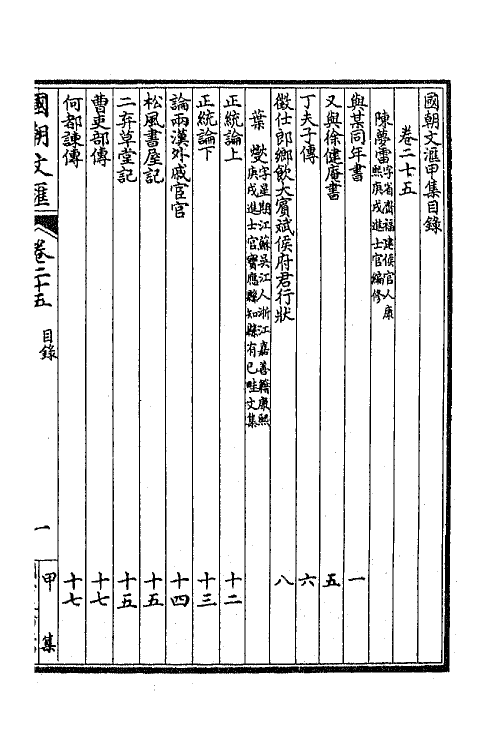 國朝文滙甲集目錄
卷二十五
陳夢雷字省齋福建侯官人康熙庚戌進士官編修
與某同年書 一
又與徐健庵書 五
丁夫子傳 六
徵仕郎鄉飲大賓斌侯府君行狀 八
葉燮字星期江蘇吳江人浙江嘉善籍康熙庚戌進士官寶應縣知縣有已畦文集
正統論上 十二
正統論下 十三
論兩漢外戚宦官 十四
松風書屋記 十五
二弃草堂記 十五
曹吏部傳 十七
何都諫傳 十七
國朝文匯
卷二十五 目錄
一 甲集